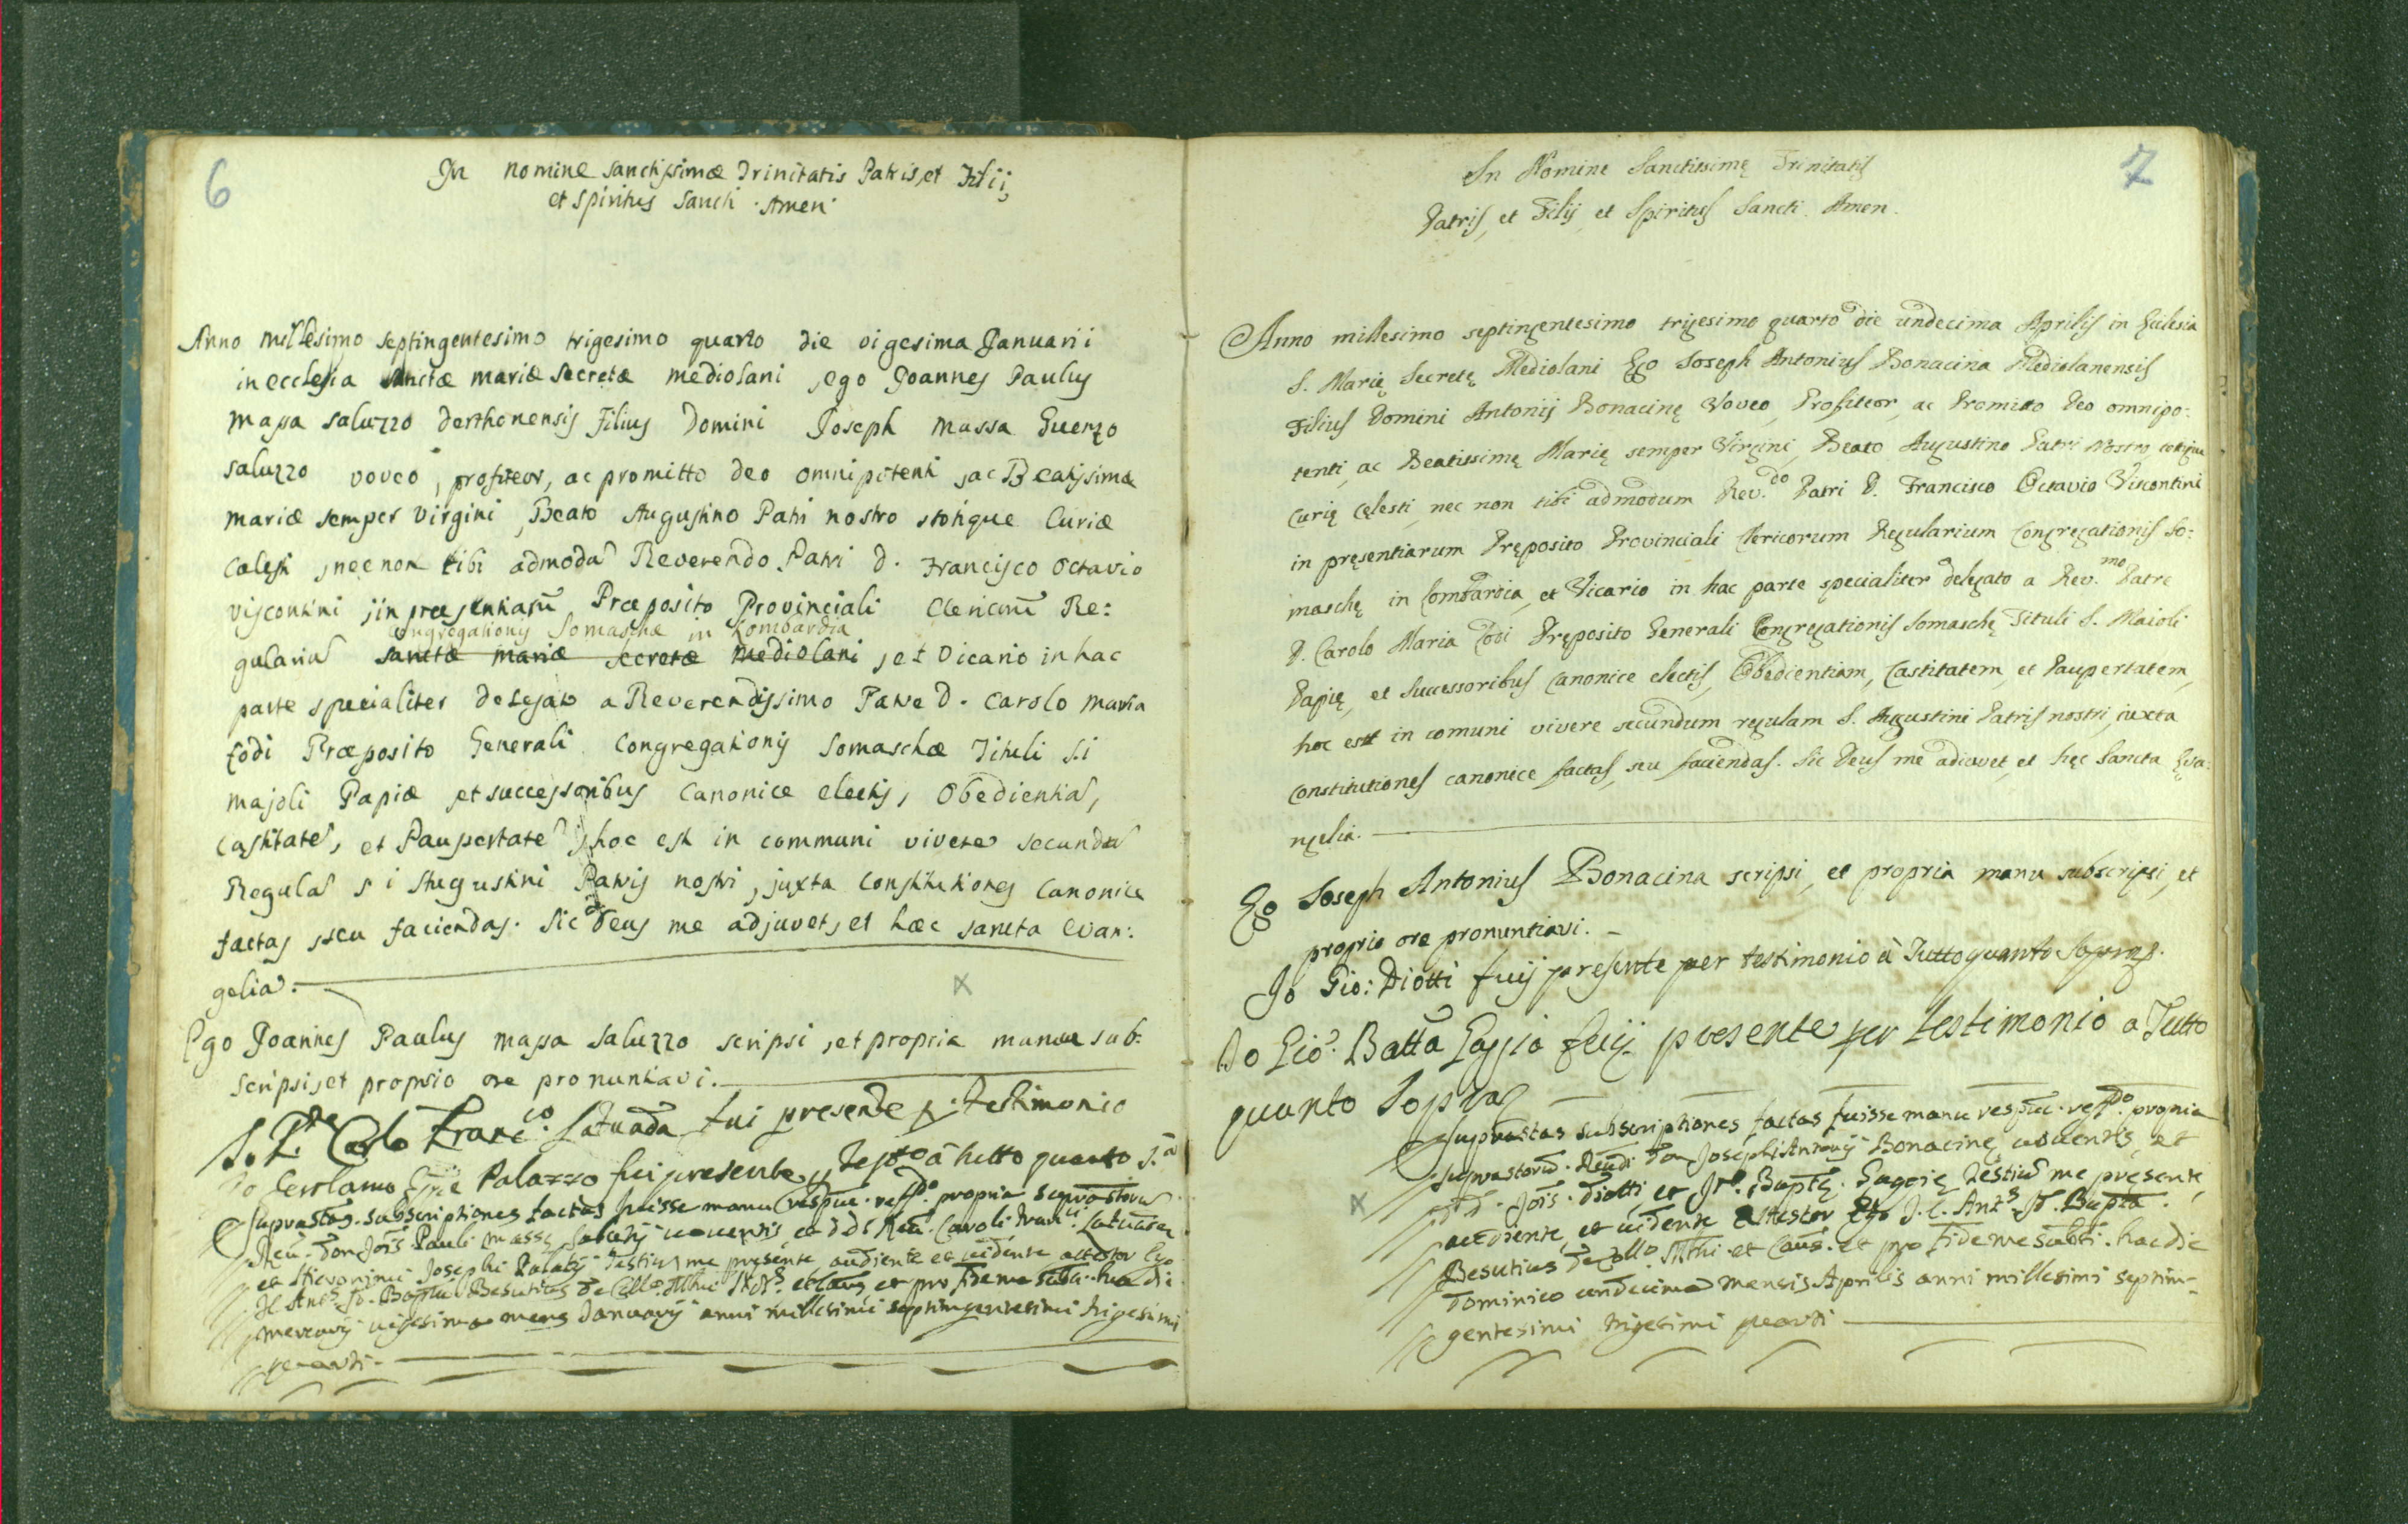 6
In nomine sanctissimæ Trinitatis Patris, et Filii,
et Spiritus Sancti . Amen.
Anno millesimo septingentesimo trigesimo quarto die vigesima Januarii
in ecclesia sanctæ mariæ secretæ mediolani , ego Joannes Paulus
massa saluzzo derthonensis Filius Domini Joseph massa Guenzo
saluzzo voveo , profiteor, ac promitto deo omnipotenti , ac Beatissimæ
mariæ semper virgini , Beato Augustino Patri nostro , totique Curiæ
Cælesti , nec non tibi admodū Reverendo Patri D. Francisco Octavio
viscontini , in præsentiarū Præposito Provinciali Clericorū Re:
Congregationis Somaschæ in Lombardia
gulariū sanctæ mariæ secretæ mediolani , et vicario in hac
parte specialiter delegato a Reverendissimo Patre D. Carolo maria
Lodi Præposito Generali Congregationis Somaschæ Tituli S.i
majoli Papiæ , et successoribus Canonice electis , Obedientiā,
Castitatē, et Paupertatē , hoc est in communi vivere secundū
Regulā s i Augustini Patris nostri , juxta Constitutiones Canonice
factas , seu faciendas. Sic deus me adjuvet, et hæc sancta evan:
gelia.
Ego Joannes Paulus massa Saluzzo scripsi , et propria manu sub:
scripsi, et proprio ore pronuntiavi.
Carlo Franc.co Latuada fui presente p. testimonio
Io Gerolamo Palazzo fui presente p testo à tutto quanto s.a
Suprastas subscriptiones factas fuisse manu respue. respdo. propria suprastorū
Reu. Don Jois Pauli Massę Salutij uouentis, et Reu. Caroli Franci. Latuadę
et Hieronimi Josephi Palatij Testiū me presente, audiente et uidente attestor Ego
Jc Ants. Jo. Bapta Besutius de Collo. et Caus et pro fide me hac die
mercurij uigesima mens Januarij anni millesimi septingentesimi trigesimi
quarti.
7
In Nomine Sanctissimę Trinitatis
Patris, et Filij, et Spiritus Sancti. Amen.
Anno millesimo septingentesimo trigesimo quarto die undecima Aprilis in Eclesia
S. Marię Secretę Mediolani Ego Joseph Antonius Bonacina Mediolanensis
Filius Domini Antonij Bonacinę Voveo, Profiteor, ac Promitto Deo omnipo:
tenti, ac Beatissimę Marię semper Virgini, Beato Augustino Patri Nostro, totique
Curię Cęlesti, nec non tibi admodum Rev.do Patri D. Francisco Octavio Viscontini
in pręsentiarum Pręposito Provinciali Clericorum Regularium Congregationis So:
maschę in Lombardia, et Vicario in hac parte specialiter delegato a Rev.mo Patre
D. Carolo Maria Lodi Pręposito Generali Congregationis Somaschę Tituli S. Maioli
Papię, et Successoribus Canonice electis, Obedientiam, Castitatem, et Paupertatem,
hoc est in comuni vivere secundum regulam S. Augustini Patris nostri, iuxta
Constitutiones canonice factas, seu faciendas. Sic Deus me adiuvet, et hęc Sancta Eva:
ngelia.
Ego Joseph Antonius Bonacina scripsi, et propria manu subscripsi, et
proprio ore pronuntiavi.
Jo Gio: Diotti fuij presente per testimonio à Tutto quanto Sopra.
Io Gio. Batta Gaggia fuij presente per testimonio a Tutto
quanto Sopra
Suprastas subscriptiones factas fuisse manu respue. respdo. propria
suprastorū. Reudi Don Josephi Antonij Bonacinę, uouentis, et
DD. Jois. Diotti et Jo. Baptę. Gaggię Testiū me pręsente,
audiente, et uidente attestor Ego J.C. Ants. Jo. Bapta.
Besutius de Collo. et Caus. et pro fide me subti. hac die
Dominico undecima mensis Aprilis anni millesimi septin-
gentesimi trigesimi quarti